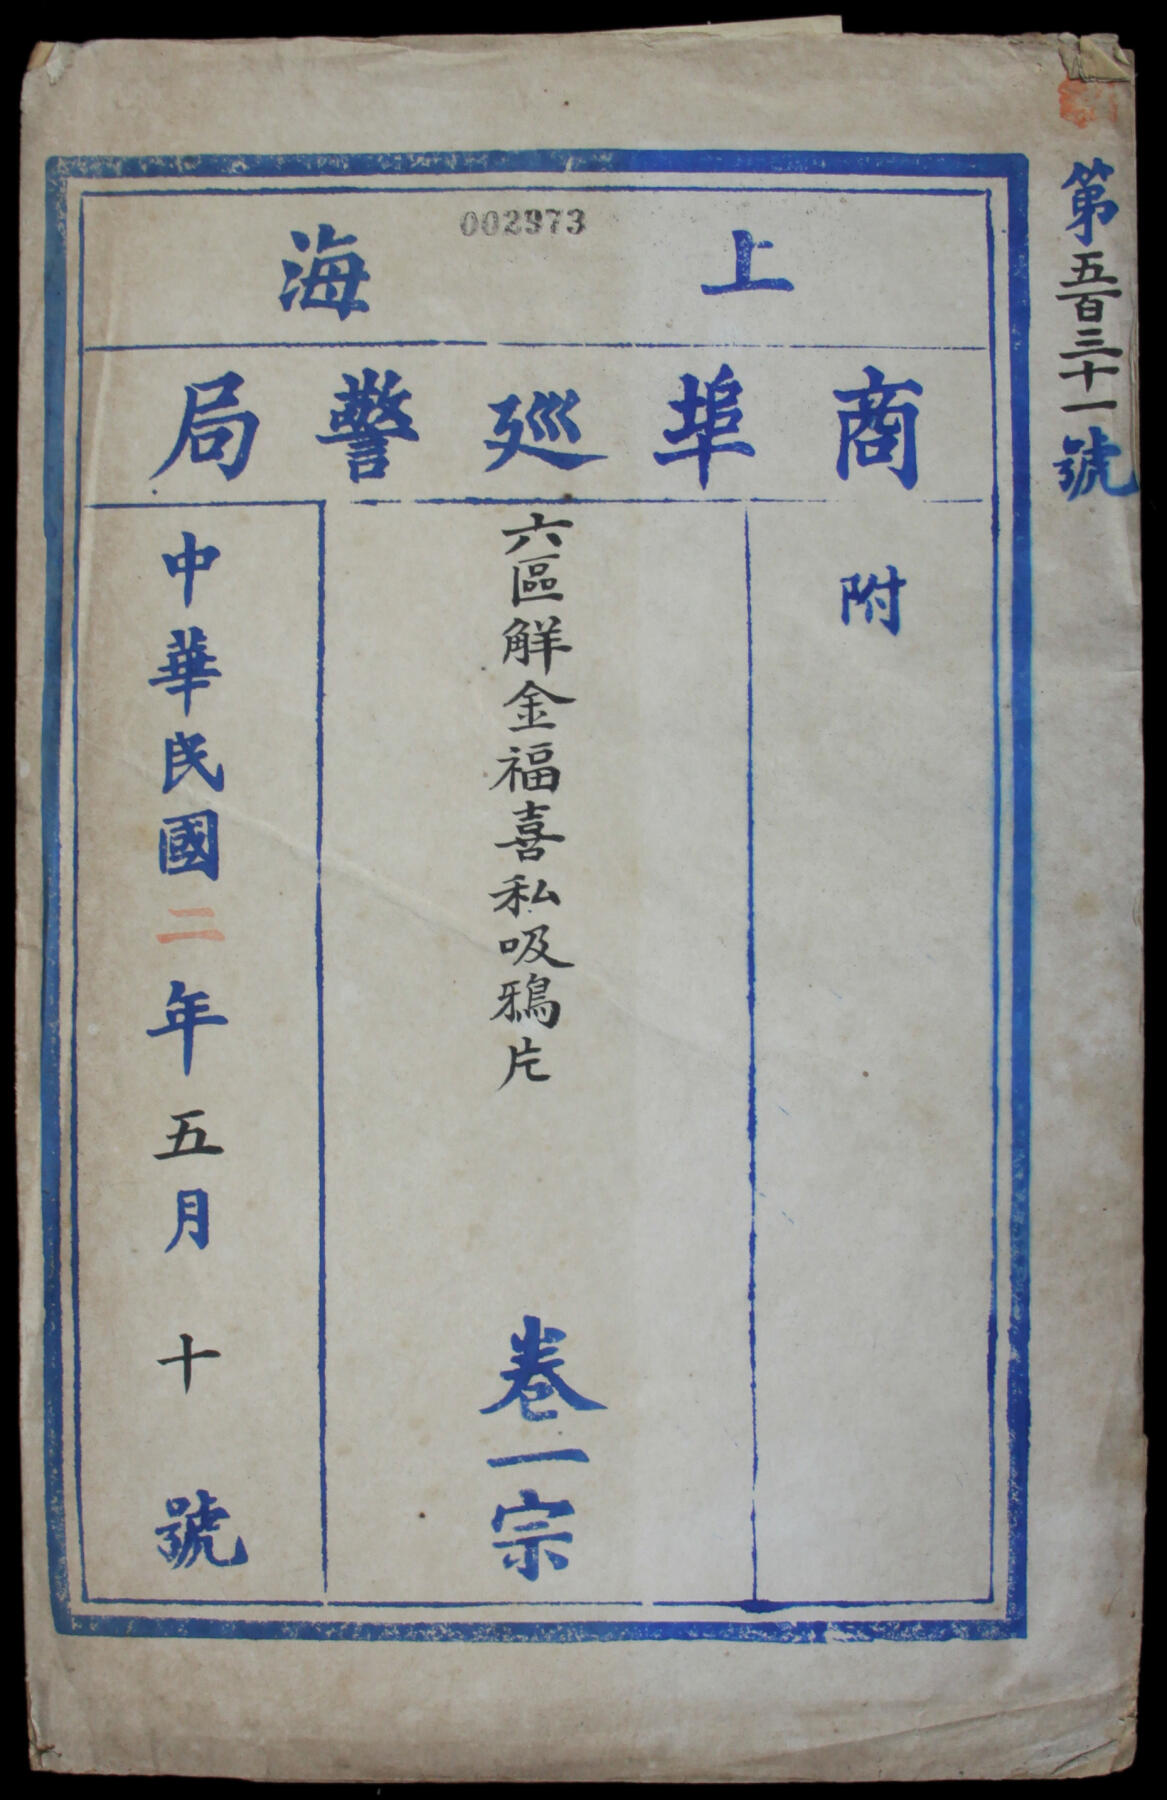 第五百三十一號
002973
上海
商埠巡警局
附
六區解金福喜私吸鴉片
卷一宗
中華民國二年五月十號